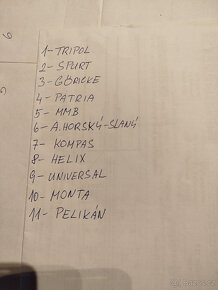 1- TRIPOL
2- SPURT
3- GÖRICKE
4- PATRIA
5- MMB
6- A.HORSKÝ-SLANÝ
7- KOMPAS
8- HELIX
9- UNIVERSAL
10- MONTA
11- PELIKÁN